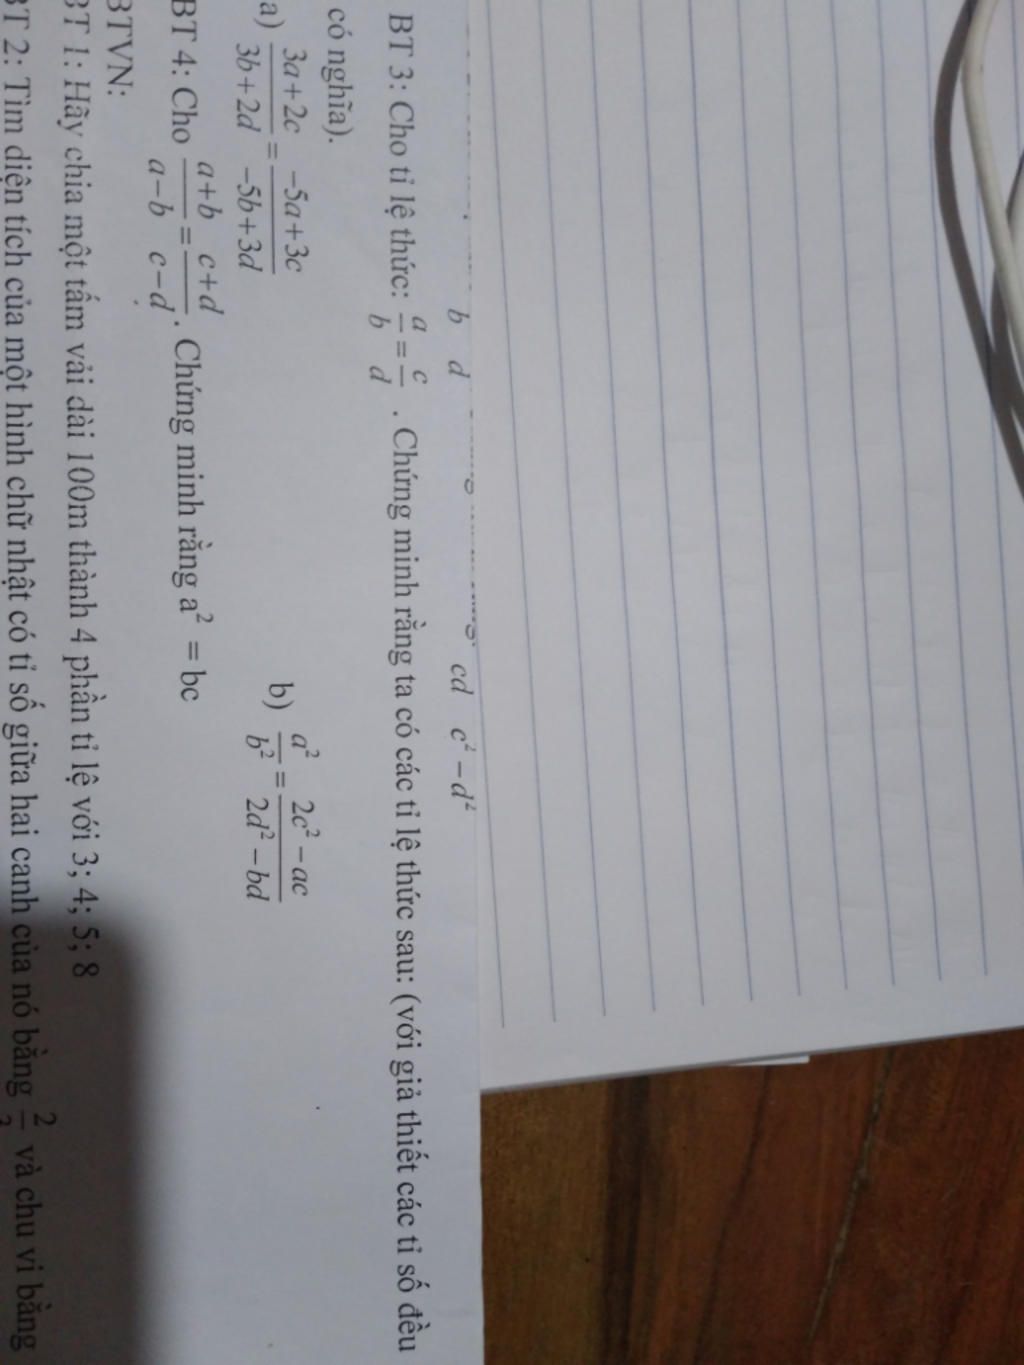 b d cd c² − d²
BT 3: Cho tỉ lệ thức: a/b = c/d . Chứng minh rằng ta có các tỉ lệ thức sau: (với giả thiết các tỉ số đều
có nghĩa).
a) (3a + 2c)/(3b + 2d) = (−5a + 3c)/(−5b + 3d) b) a²/b² = (2c² − ac)/(2d² − bd)
BT 4: Cho (a + b)/(a − b) = (c + d)/(c − d) . Chứng minh rằng a² = bc
BTVN:
BT 1: Hãy chia một tấm vải dài 100m thành 4 phần tỉ lệ với 3; 4; 5; 8
BT 2: Tìm diện tích của một hình chữ nhật có tỉ số giữa hai cạnh của nó bằng 2/ và chu vi bằng